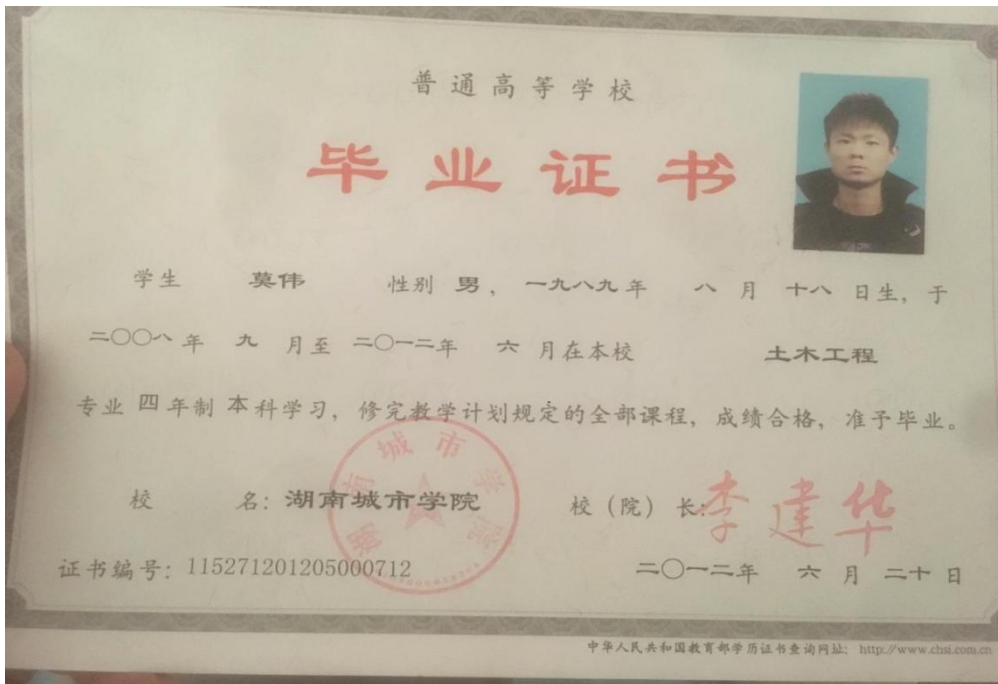 普通高等学校
毕业证书
学生 莫伟 性别 男，一九八九年 八月 十八日生，于
二〇〇八年 九月至 二〇一二年 六月在本校 土木工程
专业 四年制 本科学习，修完教学计划规定的全部课程，成绩合格，准予毕业。
湖南城市学院
校 名：湖南城市学院 校（院）长：李建华
证书编号：115271201205000712 二〇一二年 六月 二十日
中华人民共和国教育部学历证书查询网址：http://www.chsi.com.cn